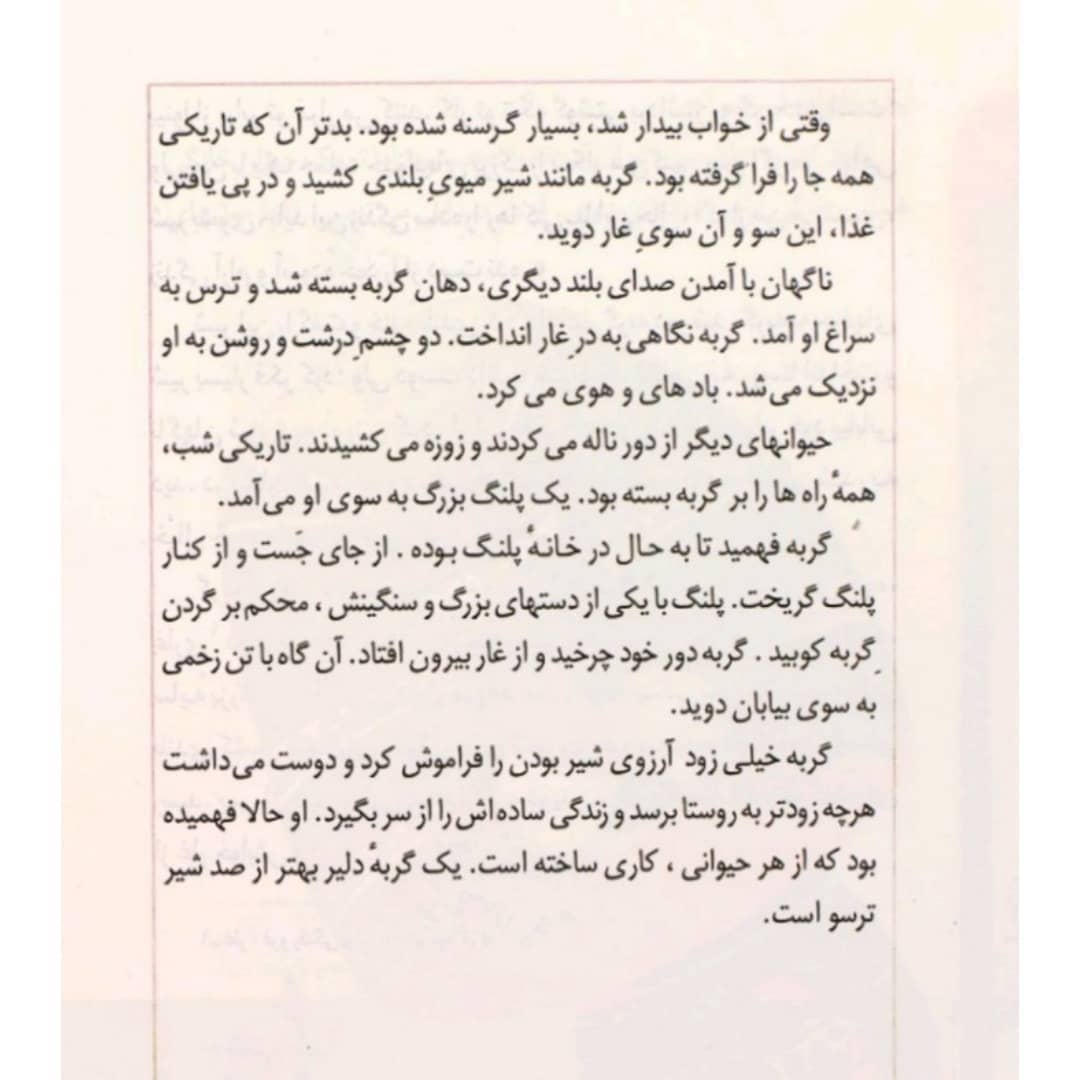 وقتی از خواب بیدار شد، بسیار گرسنه شده بود. بدتر آن که تاریکی
همه جا را فرا گرفته بود. گربه مانند شیر میویِ بلندی کشید و در پی یافتن
غذا، این سو و آن سویِ غار دوید.
ناگهان با آمدن صدای بلند دیگری، دهان گربه بسته شد و ترس به
سراغ او آمد. گربه نگاهی به درِ غار انداخت. دو چشمِ درشت و روشن به او
نزدیک می‌شد. باد های و هوی می کرد.
حیوانهای دیگر از دور ناله می کردند و زوزه می کشیدند. تاریکی شب،
همهٔ راه ها را بر گربه بسته بود. یک پلنگ بزرگ به سوی او می‌آمد.
گربه فهمید تا به حال در خانهٔ پلنگ بوده . از جای جَست و از کنار
پلنگ گریخت. پلنگ با یکی از دستهای بزرگ و سنگینش ، محکم بر گردن
گربه کوبید . گربه دور خود چرخید و از غار بیرون افتاد. آن گاه با تن زخمی
به سوی بیابان دوید.
گربه خیلی زود آرزوی شیر بودن را فراموش کرد و دوست می‌داشت
هرچه زودتر به روستا برسد و زندگی ساده‌اش را از سر بگیرد. او حالا فهمیده
بود که از هر حیوانی ، کاری ساخته است. یک گربهٔ دلیر بهتر از صد شیر
ترسو است.